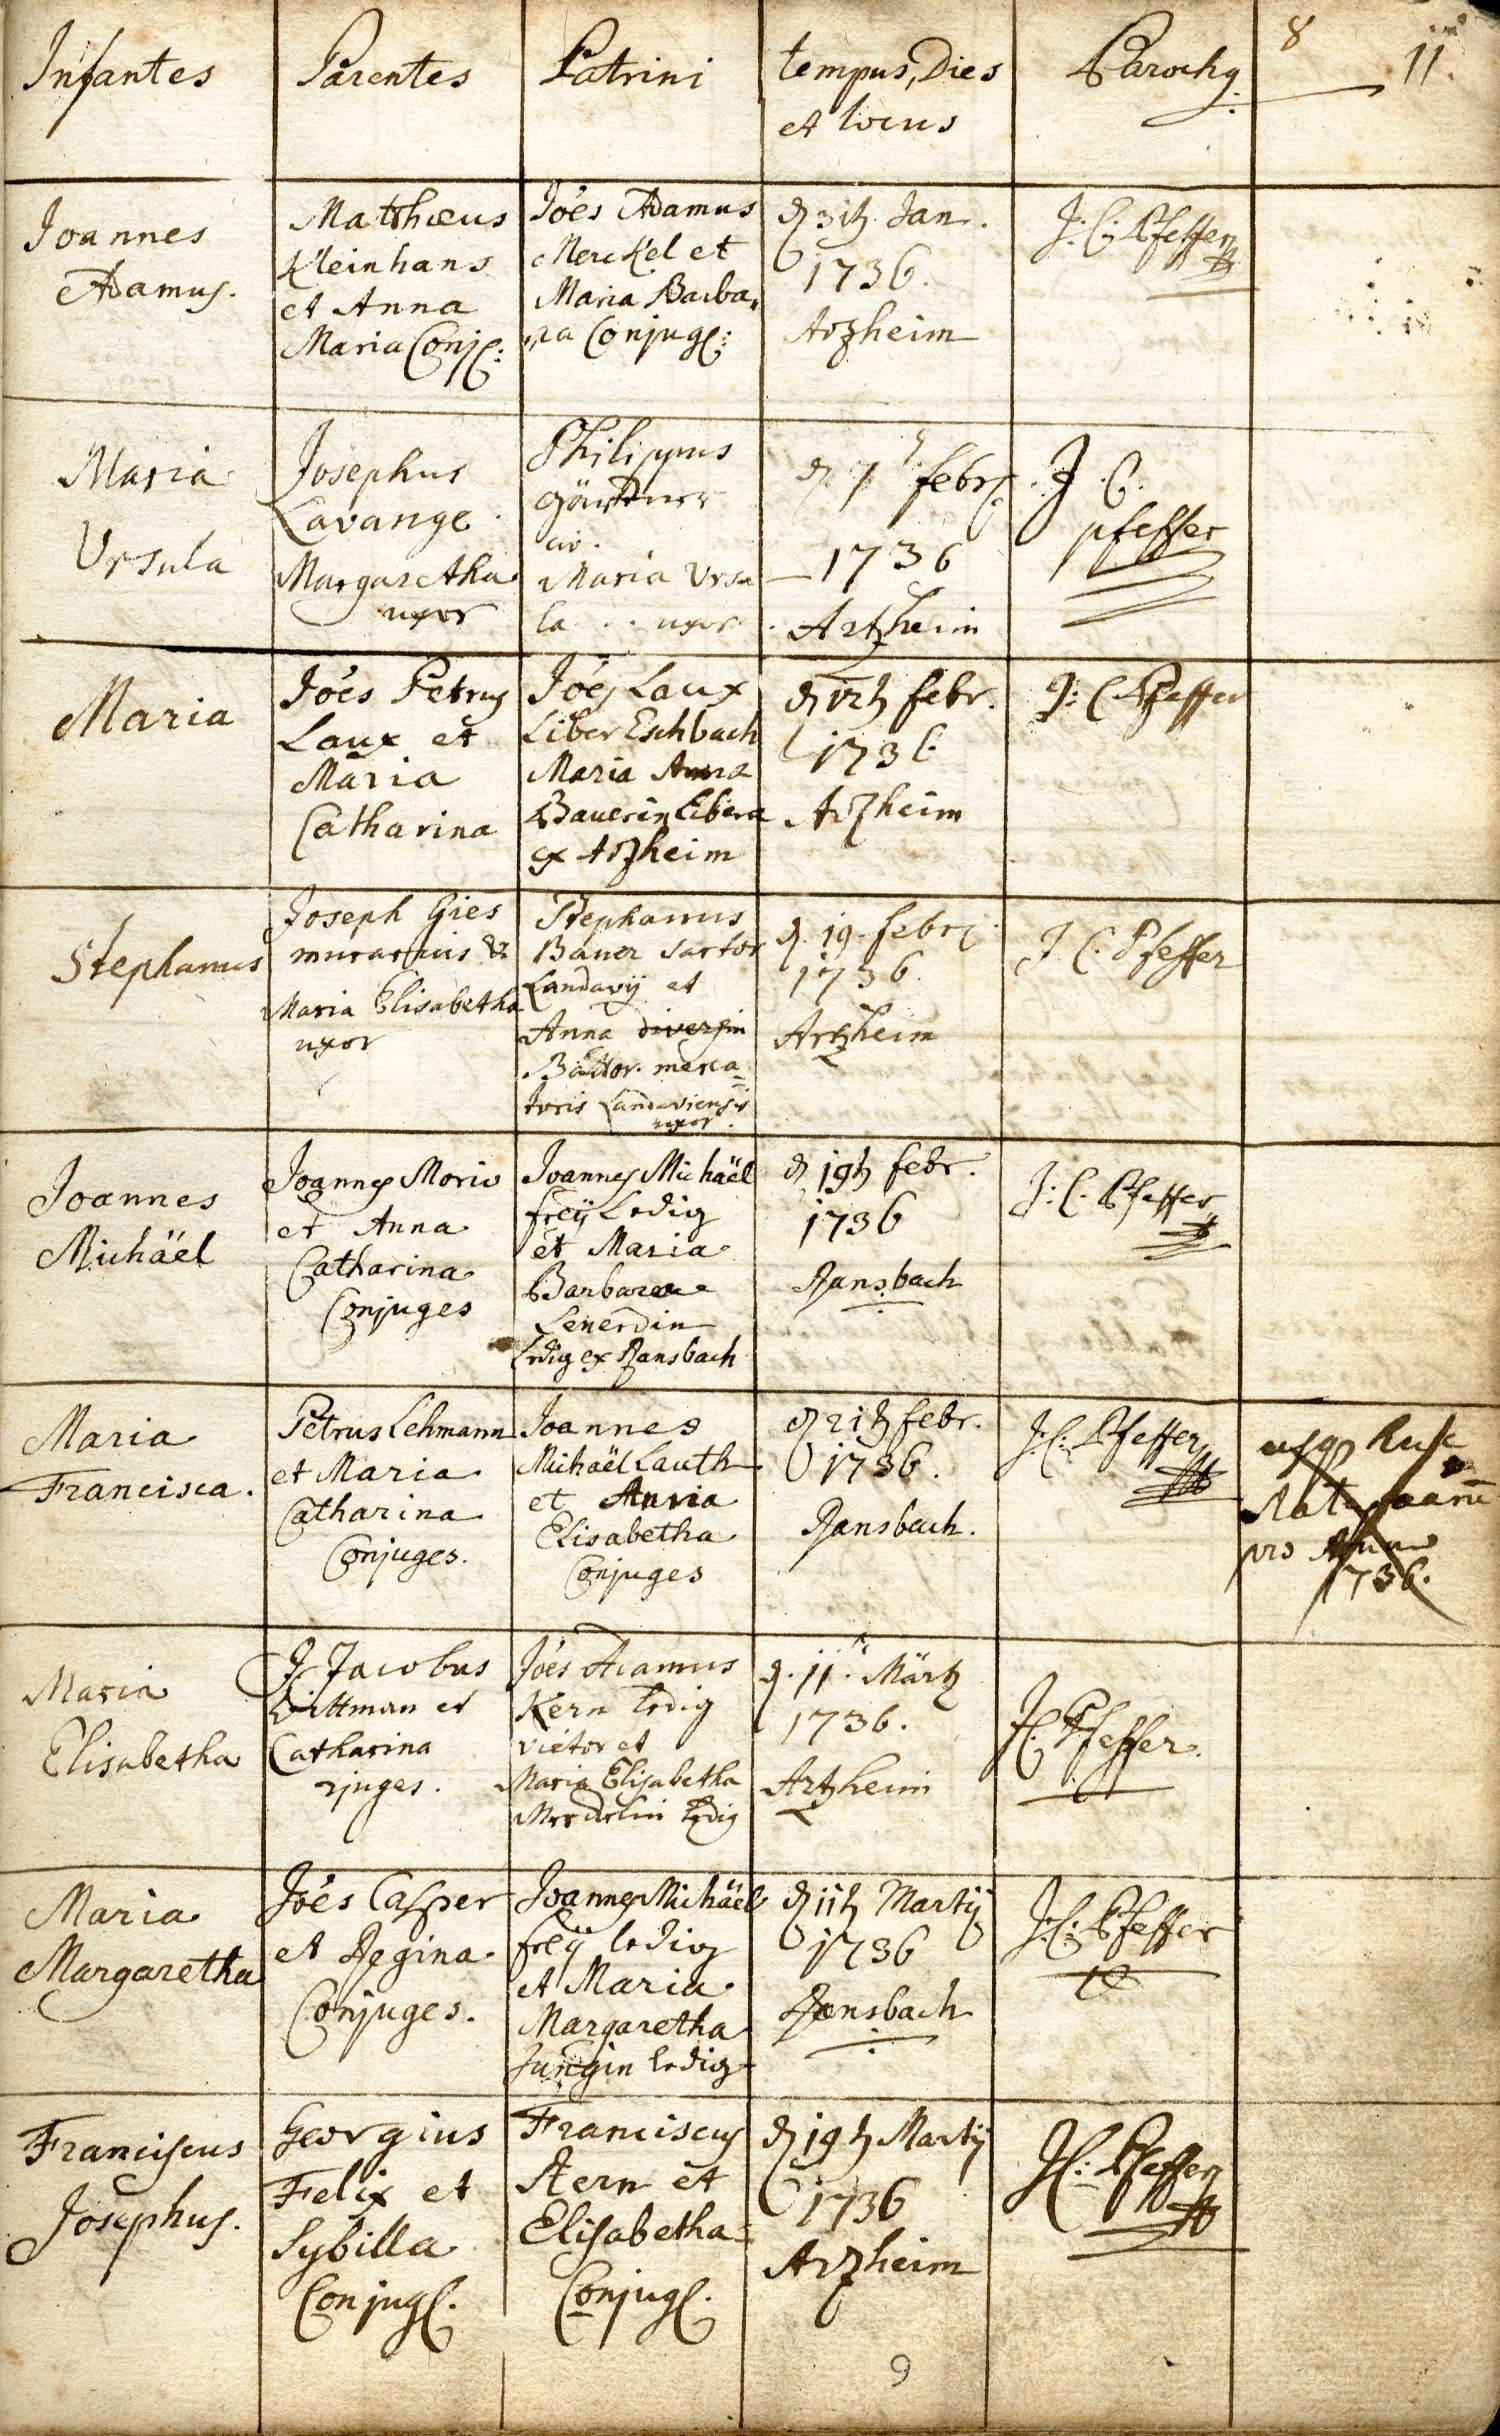 Infantes
Parentes
Patrini
tempus, Dies
et locus
Parochg:
8
11.
Joannes
Adamus.
Matthæus
Kleinhans
et Anna
Maria Conj:
Jóes Adamus
Merckel et
Maria Barba„
„ra Conjug:
d 31tz. Jan.
1736.
Arzheim
J: C: Pfeffer
Maria
Ursula
Josephus
Lavange.
Margaretha
uxor
Philippus
Gärtner
civ.
Maria Ursu
la . . uxor.
d. 7 febr.
1736
Artzheim
J. C.
pfeffer
Maria
Jóes Petrus
Laux et
Maria
Catharina
Jóes Laux
Liber Eschbach
Maria Anna
Bauerin Libera
ex Arzheim
d 12tz febr.
1736
Arzheim
J: C Pfeffer
Stephanus
Joseph Gies
murarius &
Maria Elisabetha
uxor
Stephanus
Bauer sartor
Landavij et
Anna
merca=
toris Landaviensis
uxor.
d. 19. febr.
1736.
Artzheim
J. C. Pfeffer
Joannes
Michäel
Joannes Moric
et Anna
Catharina
Conjuges
Joannes Michäel
freÿ Ledig
et Maria
Barbara
Lenerdin
Ledig ex Ransbach
d 19tz febr.
1736
Ransbach
J: C. Pfeffer
Maria
Francisca.
Petrus Lehmann
et Maria
Catharina
Conjuges.
Joannes
Michäel Lauth
et Anna
Elisabetha
Conjuges
d 21tz febr.
1736.
Ransbach.
J: C: Pfeffer
usq
pro Anno
1736.
Maria
Elisabetha
J Jacobus
Dittman et
Catharina
rjuges.
Jóes Adamus
Kern ledig
vietor et
Maria Elisabetha
ledig
d. 11. Märtz
1736.
Artzheim
J C. Pfeffer.
Maria
Margaretha
Jóes Casper
et Regina
Conjuges.
Joannes Michäel
freÿ ledig
et Maria
Margaretha
Jungin ledig
d 11tz Martij
1736
Ransbach
J: C: Pfeffer
Franciscus
Josephus.
Georgius
Felix et
Sybilla
Conjug.
Franciscus
Stern et
Elisabetha
Conjug.
d 19tz Martij
1736
Arzheim
J C: Pfeffer
9